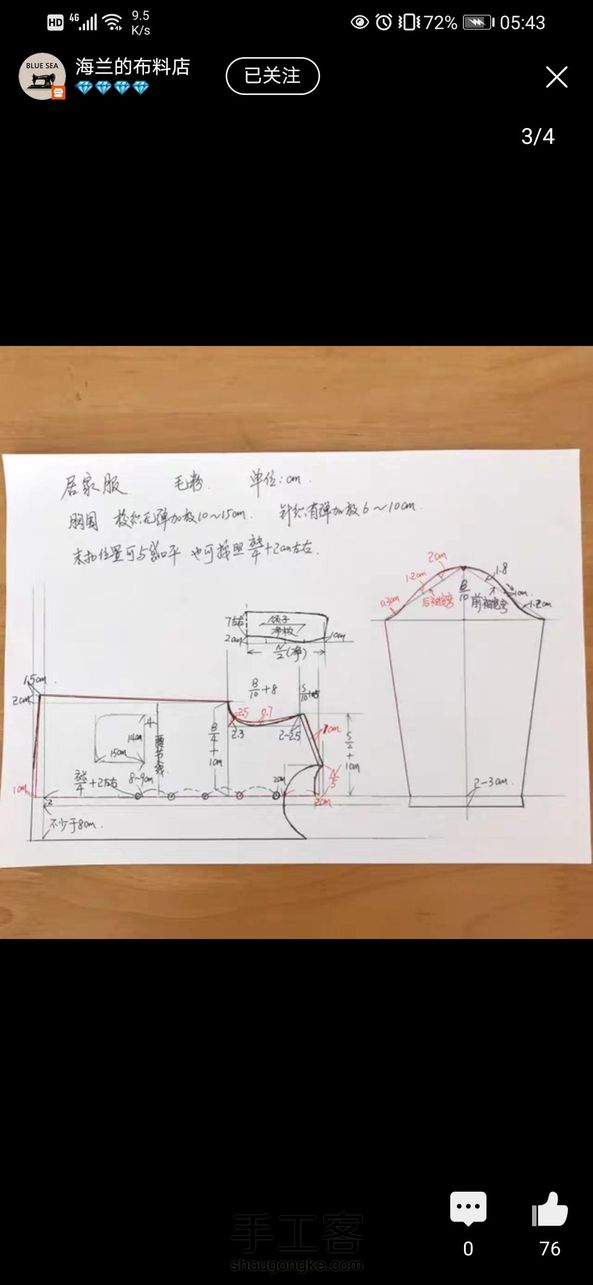 HD 4G 9.5 K/s 72% 05:43
BLUE SEA
海兰的布料店
已关注
3/4
居家服 毛粉 单位:cm
胸围 梭织无弹加放10~15cm. 针织有弹加放6~10cm.
末扣位置可与袋口平 也可按照衣长/4+2cm左右.
2cm
1.2cm
0.3cm
后袖窿弯
B/10
前袖窿弯
1.8
1cm
1.2cm
7左右
2cm
领子
净板
1cm
N/2(净)
B/10+8
S/10
1.5cm
2cm
4
14cm
15cm
B/4+1cm
2.5
0.7
2.3
2-2.5
1cm
S/2+1cm
衣长/4+2左右
8-9cm
2cm
N/5
2cm
1cm
不少于8cm.
2-3cm
手工客
shougongke.com
0
76